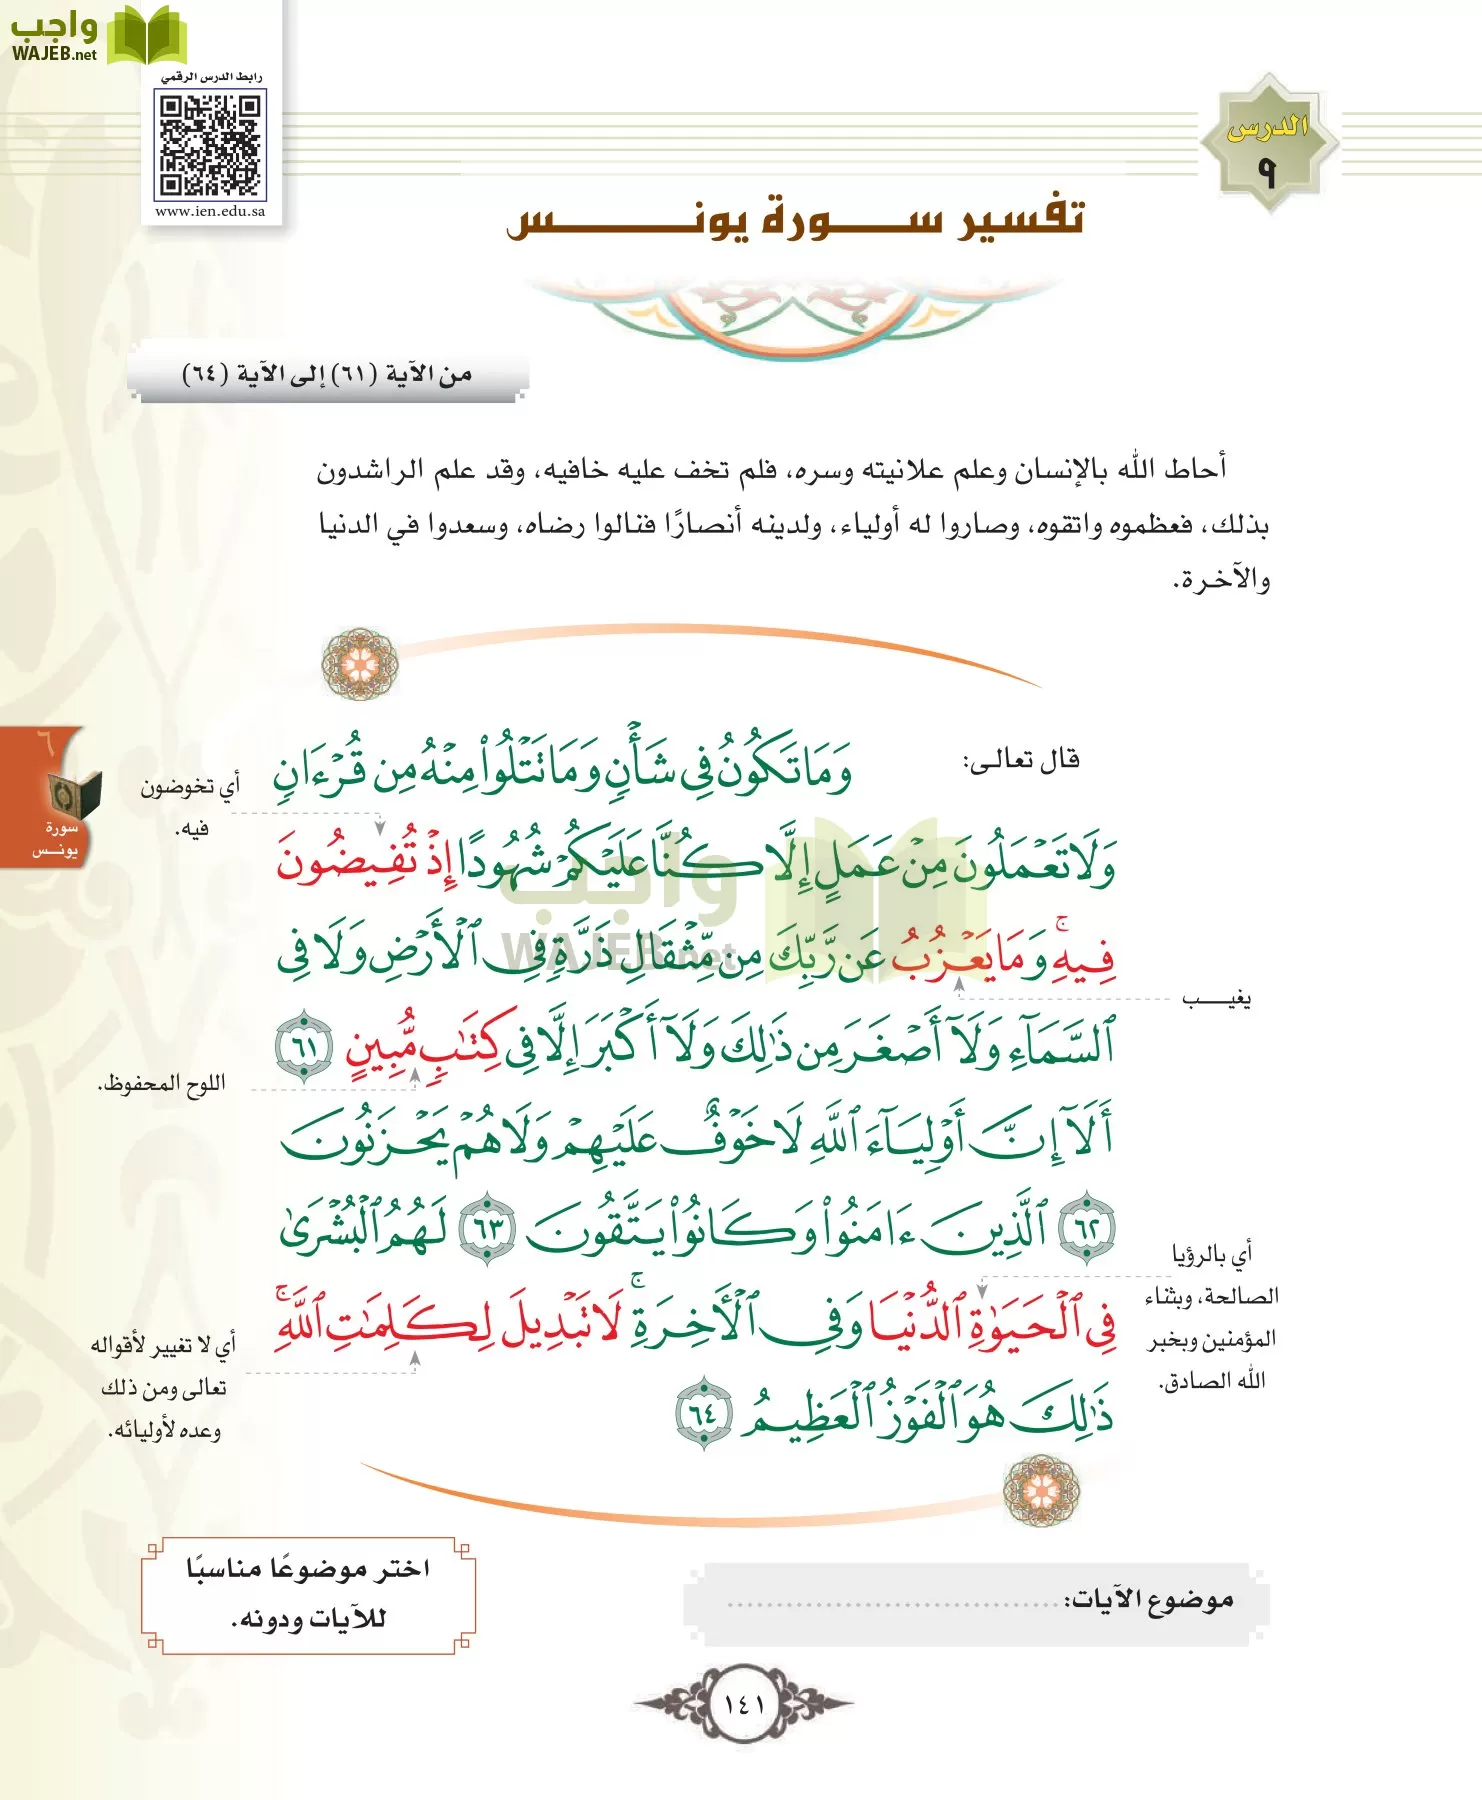 واجب
WAJEB.net
رابط الدرس الرقمي
www.ien.edu.sa
الدرس
٩
تفسير ســورة يونــس
من الآية (٦١) إلى الآية (٦٤)
أحاط الله بالإنسان وعلم علانيته وسره، فلم تخف عليه خافيه، وقد علم الراشدون
بذلك، فعظموه واتقوه، وصاروا له أولياء، ولدينه أنصارًا فنالوا رضاه، وسعدوا في الدنيا
والآخرة.
قال تعالى: وَمَا تَكُونُ فِى شَأْنٍ وَمَا تَتْلُوا۟ مِنْهُ مِن قُرْءَانٍ
وَلَا تَعْمَلُونَ مِنْ عَمَلٍ إِلَّا كُنَّا عَلَيْكُمْ شُهُودًا إِذْ تُفِيضُونَ
فِيهِ ۚ وَمَا يَعْزُبُ عَن رَّبِّكَ مِن مِّثْقَالِ ذَرَّةٍ فِى ٱلْأَرْضِ وَلَا فِى
ٱلسَّمَآءِ وَلَآ أَصْغَرَ مِن ذَٰلِكَ وَلَآ أَكْبَرَ إِلَّا فِى كِتَٰبٍ مُّبِينٍ ٦١
أَلَآ إِنَّ أَوْلِيَآءَ ٱللَّهِ لَا خَوْفٌ عَلَيْهِمْ وَلَا هُمْ يَحْزَنُونَ
٦٢ ٱلَّذِينَ ءَامَنُوا۟ وَكَانُوا۟ يَتَّقُونَ ٦٣ لَهُمُ ٱلْبُشْرَىٰ
فِى ٱلْحَيَوٰةِ ٱلدُّنْيَا وَفِى ٱلْءَاخِرَةِ ۚ لَا تَبْدِيلَ لِكَلِمَٰتِ ٱللَّهِ ۚ
ذَٰلِكَ هُوَ ٱلْفَوْزُ ٱلْعَظِيمُ ٦٤
أي تخوضون
فيه.
يغيــب
اللوح المحفوظ.
أي بالرؤيا
الصالحة، وبثناء
المؤمنين وبخبر
الله الصادق.
أي لا تغيير لأقواله
تعالى ومن ذلك
وعده لأوليائه.
٦
سورة
يونــس
واجب
WAJEB.net
موضوع الآيات: ..................................
اختر موضوعًا مناسبًا
للآيات ودونه.
١٤١